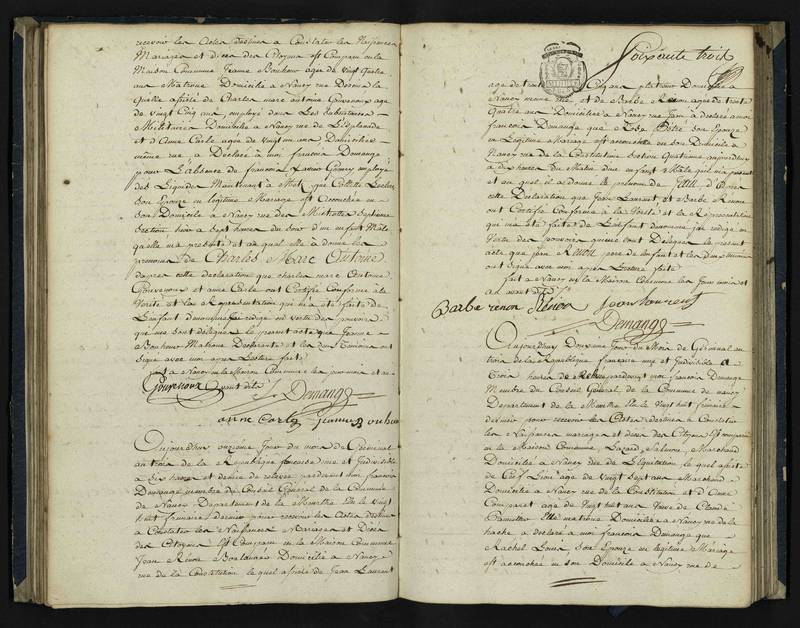 recevoir les Actes destinés a Constater les Naissances
Mariages et décès des Citoyens est Comparu en la
Maison Commune Jeanne Bonhour agée de vingt quatre
ans Matrone Domiciliée a Nancy rue
quelle assisté de Charles marc antoine Gouvenoux agé
de vingt Cinq ans employé dans Les Subsistances
Militaires Domicilié a Nancy rue de L'Esplanade
et d'Anne Carle agée de vingt un ans Domiciliée
même rue a Declaré a moi francois Demange
pour L'absence de francois Xavier employé
des Liquides Maintenant a Metz que Collette Leclerc
Son Epouze en légitime Mariage est accouchée en
Son Domicile a Nancy rue des Michottes Septieme
Section hier a Sept heures du Soir d'un enfant Male
quelle ma présenté et au quel elle a donné les
prenoms de Charles Marc Antoine
dapres cette declaration que charles marc antoine
Gouvenoux et anne Carle ont Certifiée Conforme à la
Verité et la Représentation qui m'a été faite de
L'enfant denommé jai redigé en vertu des pouvoirs
qui me sont délégués le présent acte que Jeanne
Bonhour Matrone et les deux Témoins ont
Signé avec moi apres Lecture fait
fait a Nancy en la Maison Commune les jour mois et an
Gouvenoux Demange
anne Carle jeanne Bonhour
Aujourdhui onzieme Jour du mois de Germinal
an trois de la Republique francaise une et Indivisible
a Six heures et demie de relevée pardevant moi francois
Demange membre du Conseil General de la Commune
de Nancy Departement de la Meurthe Elu le vingt
huit frimaire dernier pour recevoir les Actes destinés
a Constater les Naissances Mariages et Décès
des Citoyens Est Comparu en la Maison Commune
Jean Rénon Domicilié a Nancy
rue de la Constitution le quel assisté de Jean Laurent
Soixante trois
agé de trente Domicilié a
Nancy meme rue et de Barbe Rénon agée de trente
quatre ans Domiciliée a Nancy rue Jean a déclaré a moi
francois Demange que Son Epouze
en Legitime Mariage est accouchée en Son Domicile a
Nancy rue de la Constitution Section Quatrieme aujourdhuy
a dix heures du Matin dun enfant Male qu'il ma presenté
et au quel il a donné le prénom de
cette Declaration que Jean Laurent et Barbe Rénon
ont Certifié Conforme à la Verité et la Représentation
qui m'a été faite de L'enfant denommé jai rédigé en
Vertu des pouvoirs qui me sont Délégués le présent
acte que jean Rénon pere de l'enfant et les deux témoins
ont Signé avec moi apres Lecture faite
fait a Nancy en la Maison Commune les Jour mois et
an avant dits
Barbe renon Rénon jean laurent
Demange
Aujourdhuy Douzieme Jour du Mois de Germinal an
trois de la République francaise une et Indivisible a
Trois heures de Relevée pardevant moi francois Demange
Membre du Conseil General de la Commune de nancy
Departement de la Meurthe Elu le vingt huit frimaire
dernier pour recevoir les Actes destinés a Constater
les Naissances mariages et décès des Citoyens Est comparu
en la Maison Commune Lazard Salmon Marchand
Domicilié a Nancy rue de L'Equitation le quel assisté
de Cerf Lion agé de Vingt Sept ans Marchand
Domicilié a Nancy rue de la Constitution et d'Anne
Comparet agée de vingt huit ans Veuve de Claude
Matrone Domiciliée a Nancy rue de la
hache a declaré a moi francois Demange que
Rachel Louis Son Epouze en legitime Mariage
est accouchée en Son Domicile a Nancy rue de